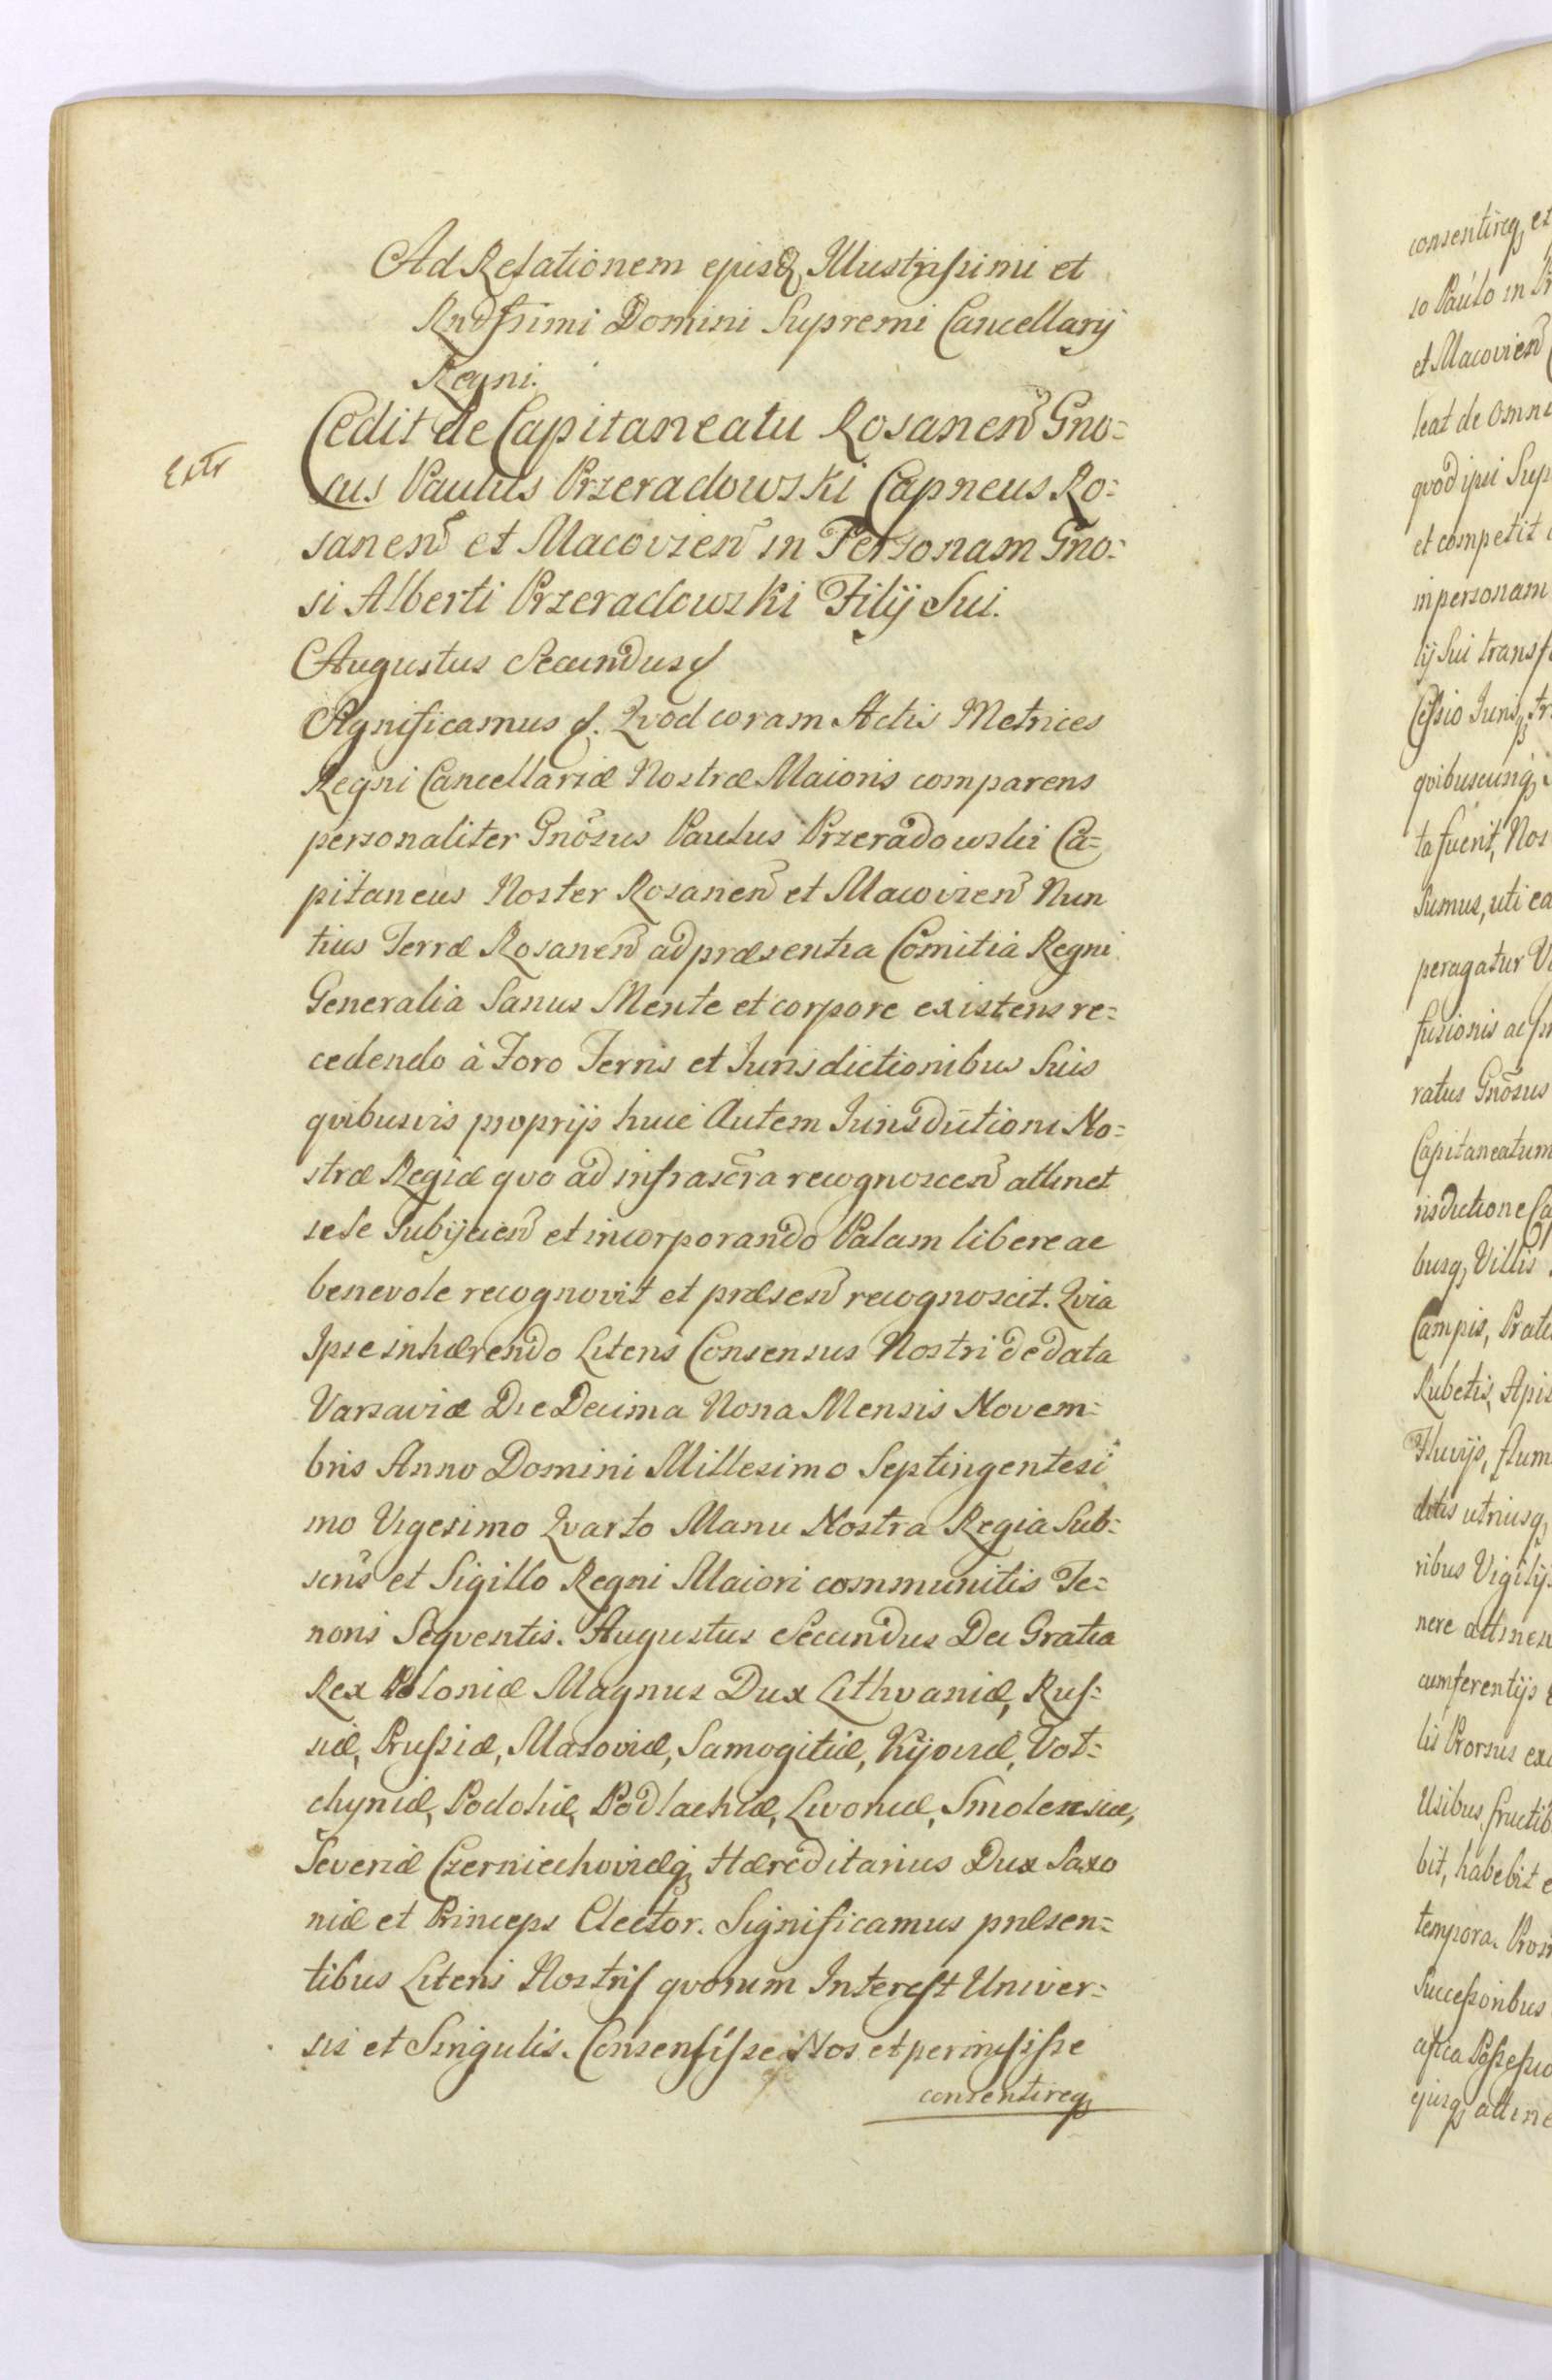 Ad Relationem ejusq, Illustrissimi et
Rndssimi Domini Supremi Cancellarij
Regni.
Extr
Cedit de Capitaneatu Rosanen Gno=
sus Paulus Przeradowski Capneus Ro=
sanen et Macovien in Personam Gno=
si Alberti Przeradowski Filij Sui.
Augustus Secundus
Significamus Quod coram Actis Metrices
Regni Cancellariæ Nostræ Maioris comparens
personaliter Gnosus Paulus Przeradowski Ca=
pitaneus Noster Rosanen et Macovien Nun
tius Terræ Rosanen ad præsentia Comitia Regni
Generalia Sanus Mente et corpore existens re=
cedendo à Foro Terris et Iurisdictionibus Suis
qvibusvis proprijs huic Autem Iurisdictioni No=
stræ Regiæ qvo ad infrascra recognoscen attinet
sese Subijcien et incorporando Palam libere ac
benevole recognovit et præsen recognoscit. Qvia
Ipse inhærendo Literis Consensus Nostri de data
Varsaviæ Die Decima Nona Mensis Novem=
bris Anno Domini Millesimo Septingentesi
mo Vigesimo Qvarto Manu Nostra Regia Sub=
scris et Sigillo Regni Maiori communitis Te=
noris Seqventis. Augustus Secundus Dei Gratia
Rex Poloniæ Magnus Dux Lithvaniæ, Rus=
siæ, Prussiæ, Masoviæ, Samogitiæ, Kijoviæ, Vol=
chyniæ, Podoliæ, Podlachiæ, Livoniæ, Smolensciæ,
Severiæ Czerniechoviæq, Hæreditarius Dux Saxo
niæ et Princeps Elector. Significamus præsen=
tibus Literis Nostris qvorum Interest Univer=
sis et Singulis. Consensisse Nos et permisisse
consentireq,
consentireq, et
so Paulo in Pr
et Macovien
leat de omni
qvod ipsi Sup
et competit
in personam
lij Sui transf
Cessio Iuris, tr
qvibuscunq,
ta fuerit, Nos
Sumus, uti ea
peragatur
fusionis ac
ratus Gnosus
Capitaneatum
risdictione Ca
busq, Villis
Campis, Pratis
Rubetis, Apis
Fluvijs, flum
detis utriusq,
ribus Vigilij
nere attinen
cumferentijs
lis Prorsus ex
Usibus, fructib
bit, habebit e
tempora. Prom
Successoribus
astca Possessio
ejusq, attine